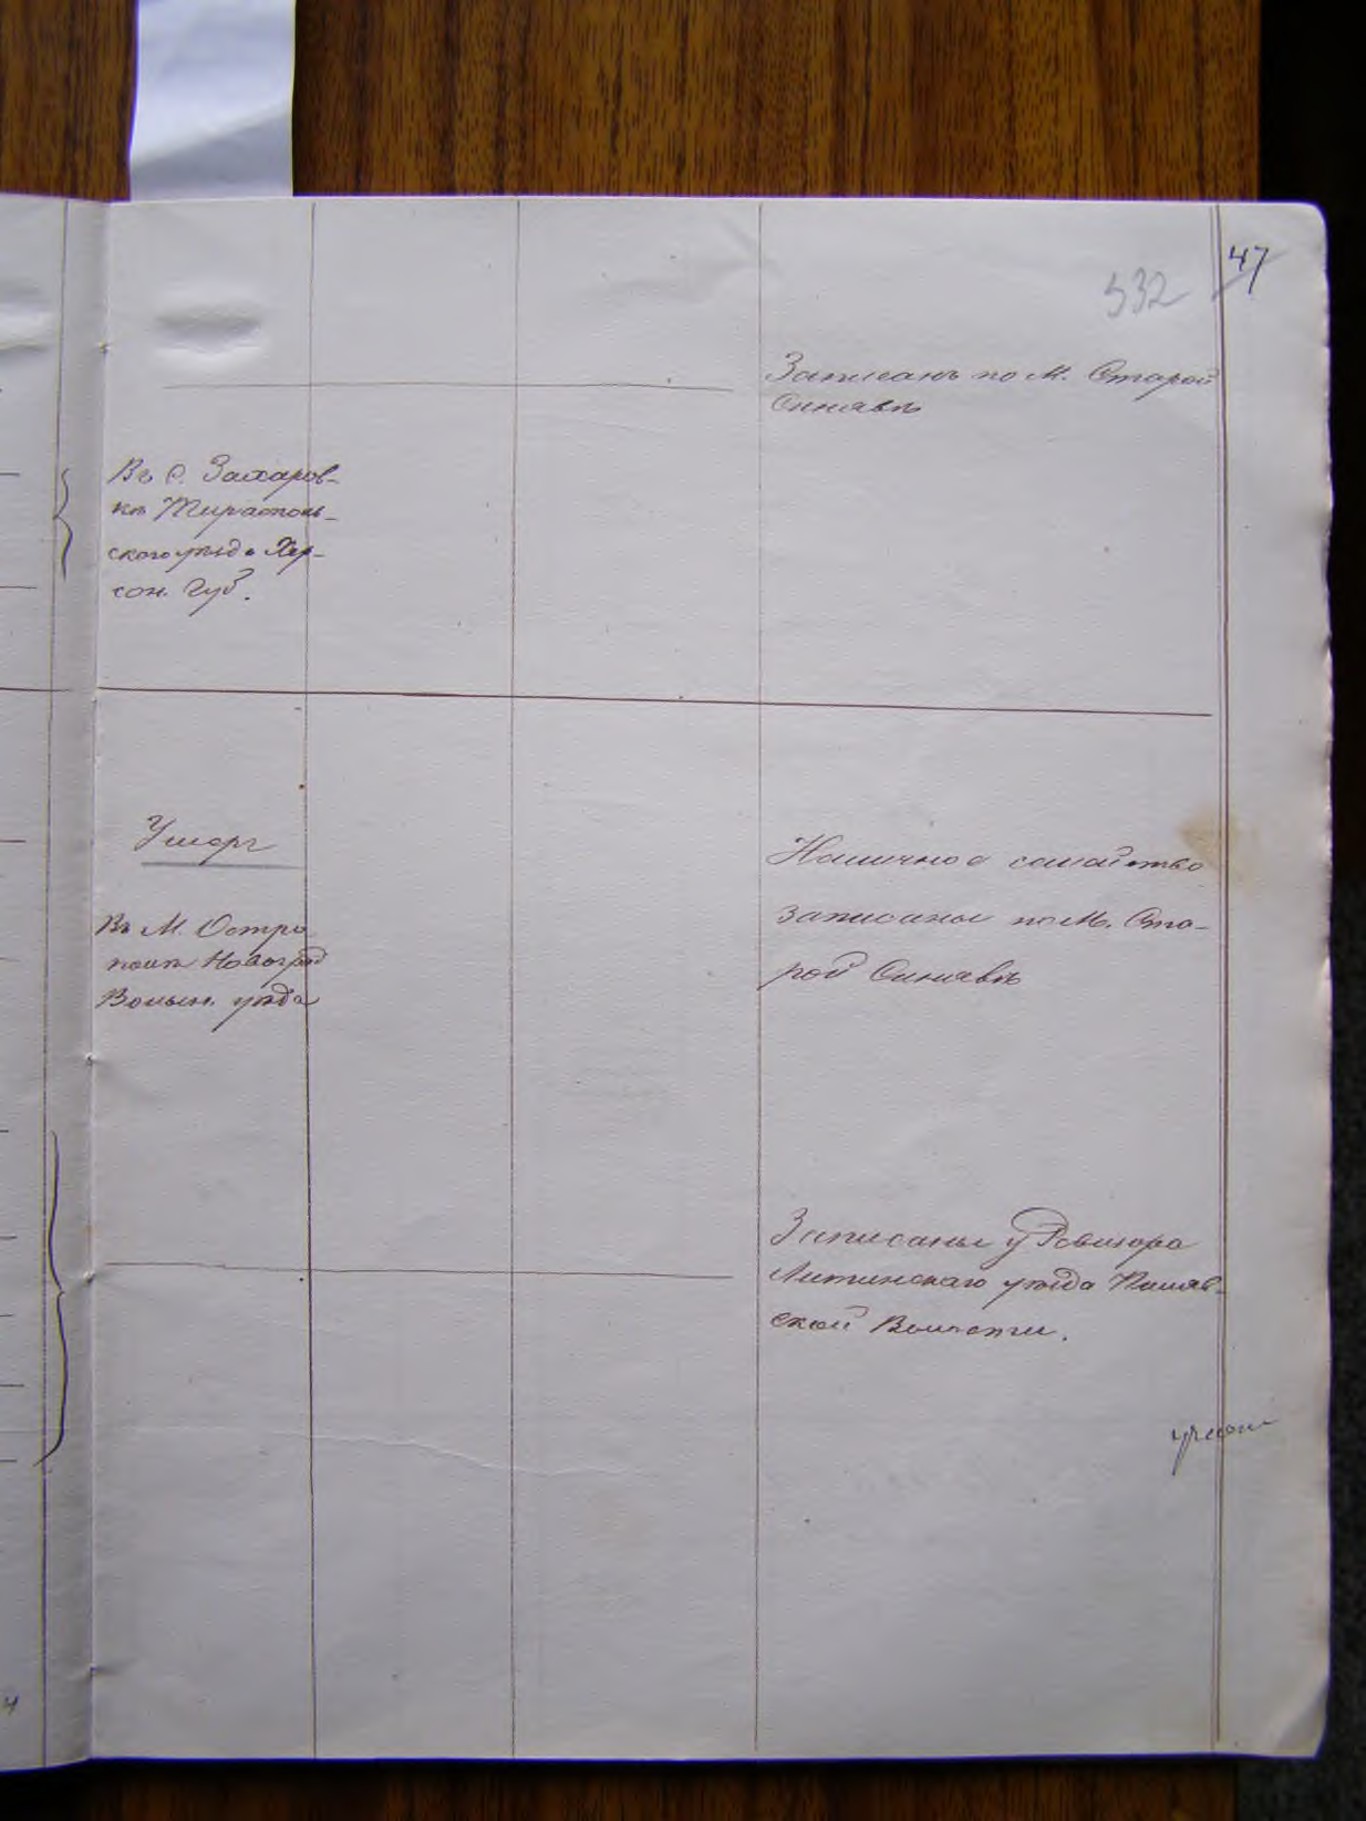 47
532
Записанъ по М. Старой
Синявѣ
Въ С. Захаров-
кѣ Тираспол-
скаго уѣзда Хер-
сон. Губ.
Умеръ
Въ М. Остро
полѣ Новоград
Волын. уѣзда
Наличное семейство
записаны по М. Ста-
рой Синявѣ
Записаны у Ревизора
Литинскаго уѣзда
ской Волости.